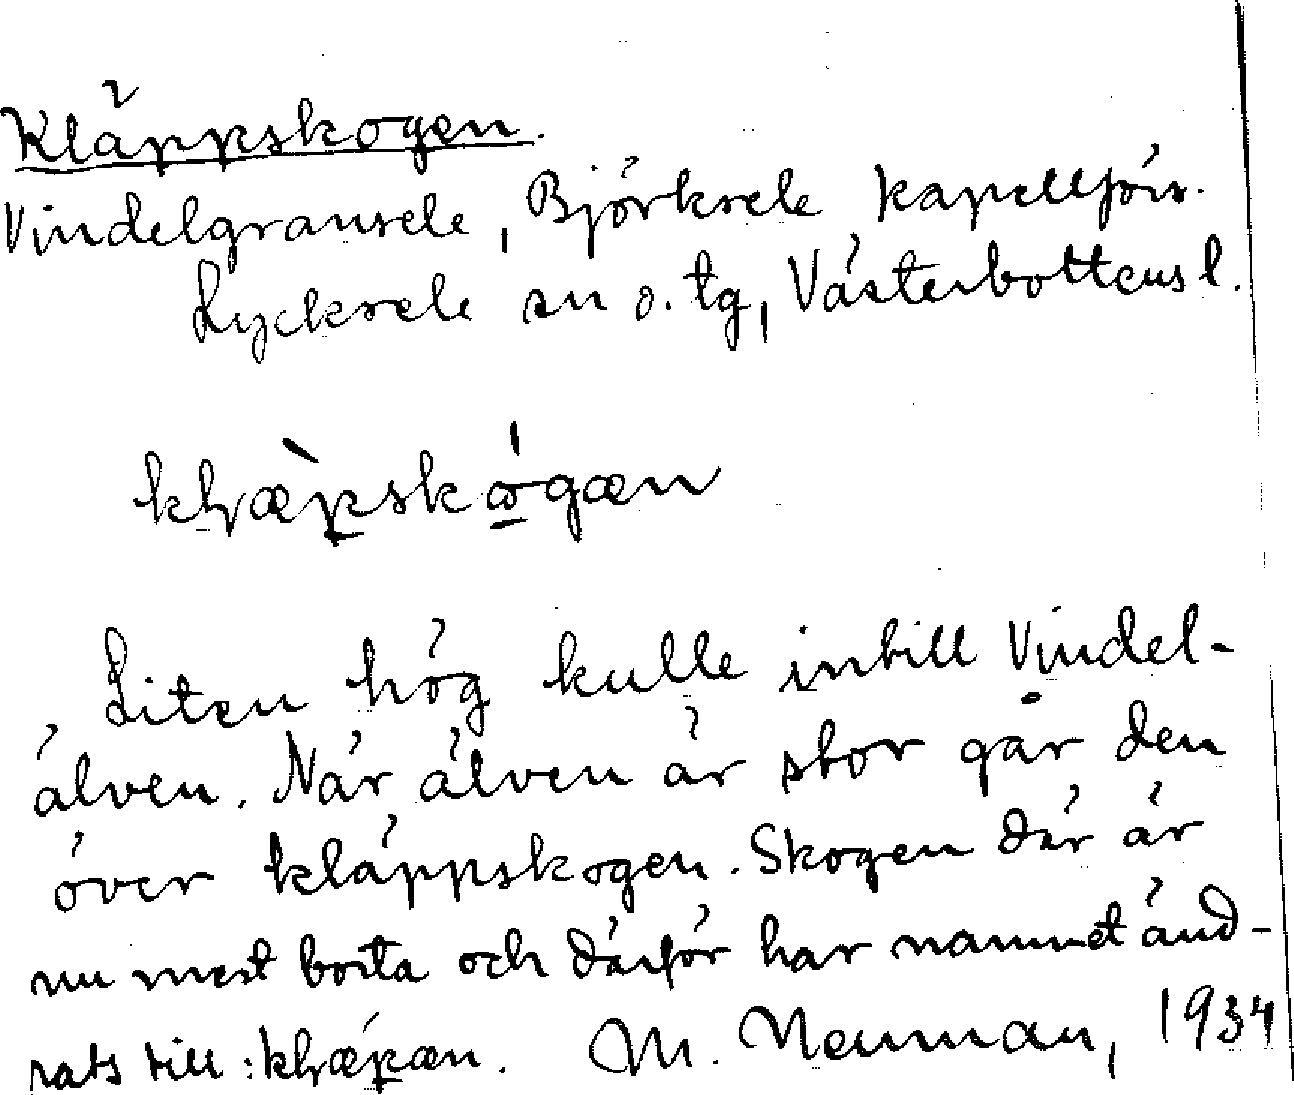 Kläppskogen.
Vindelgransele, Björksele kapellförs.
Lycksele sn o. tg, Västerbottens l.
kḷæ̀p̠skώ̲gæn
Liten hög kulle intill Vindel-
älven. När älven är stor går den
över kläppskogen. Skogen där är
nu mest borta och därför har namnet änd-
rats till: kḷǽp̠æn. M. Neuman, 1934